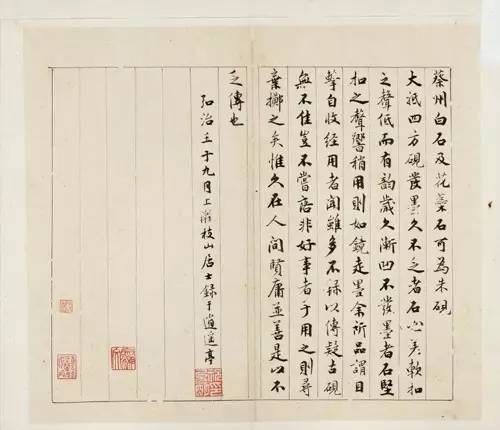 蔡州白石及花蘂石可為朱硯
大抵四方硯發墨久不乏者石必差軟扣
之聲低而有韻歲久漸凹不發墨者石堅
扣之聲響稍用則如鏡走墨余所品謂目
擊自收经用者聞雖多不錄以傳疑古硯
無不佳豈不嘗語非好事者予用之則尋
棄擲之矣惟久在人間賢庸並善是以不
乏傳也
弘治壬子九月上澣枝山居士錄于逍遙亭